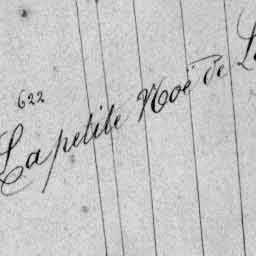 622
La petite Noé de